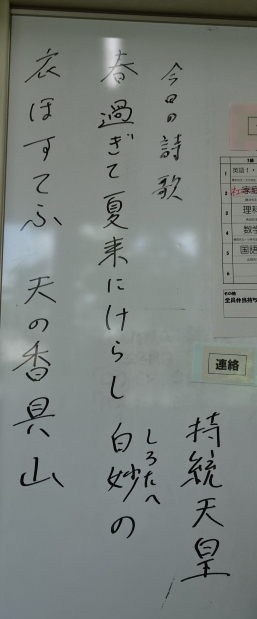 今日の詩歌
持統天皇
春過ぎて夏来にけらし 白妙の
しろたへ
衣ほすてふ 天の香具山
連絡
1 英語1・
2 家庭
3 理科
4 数学
5 国語
6